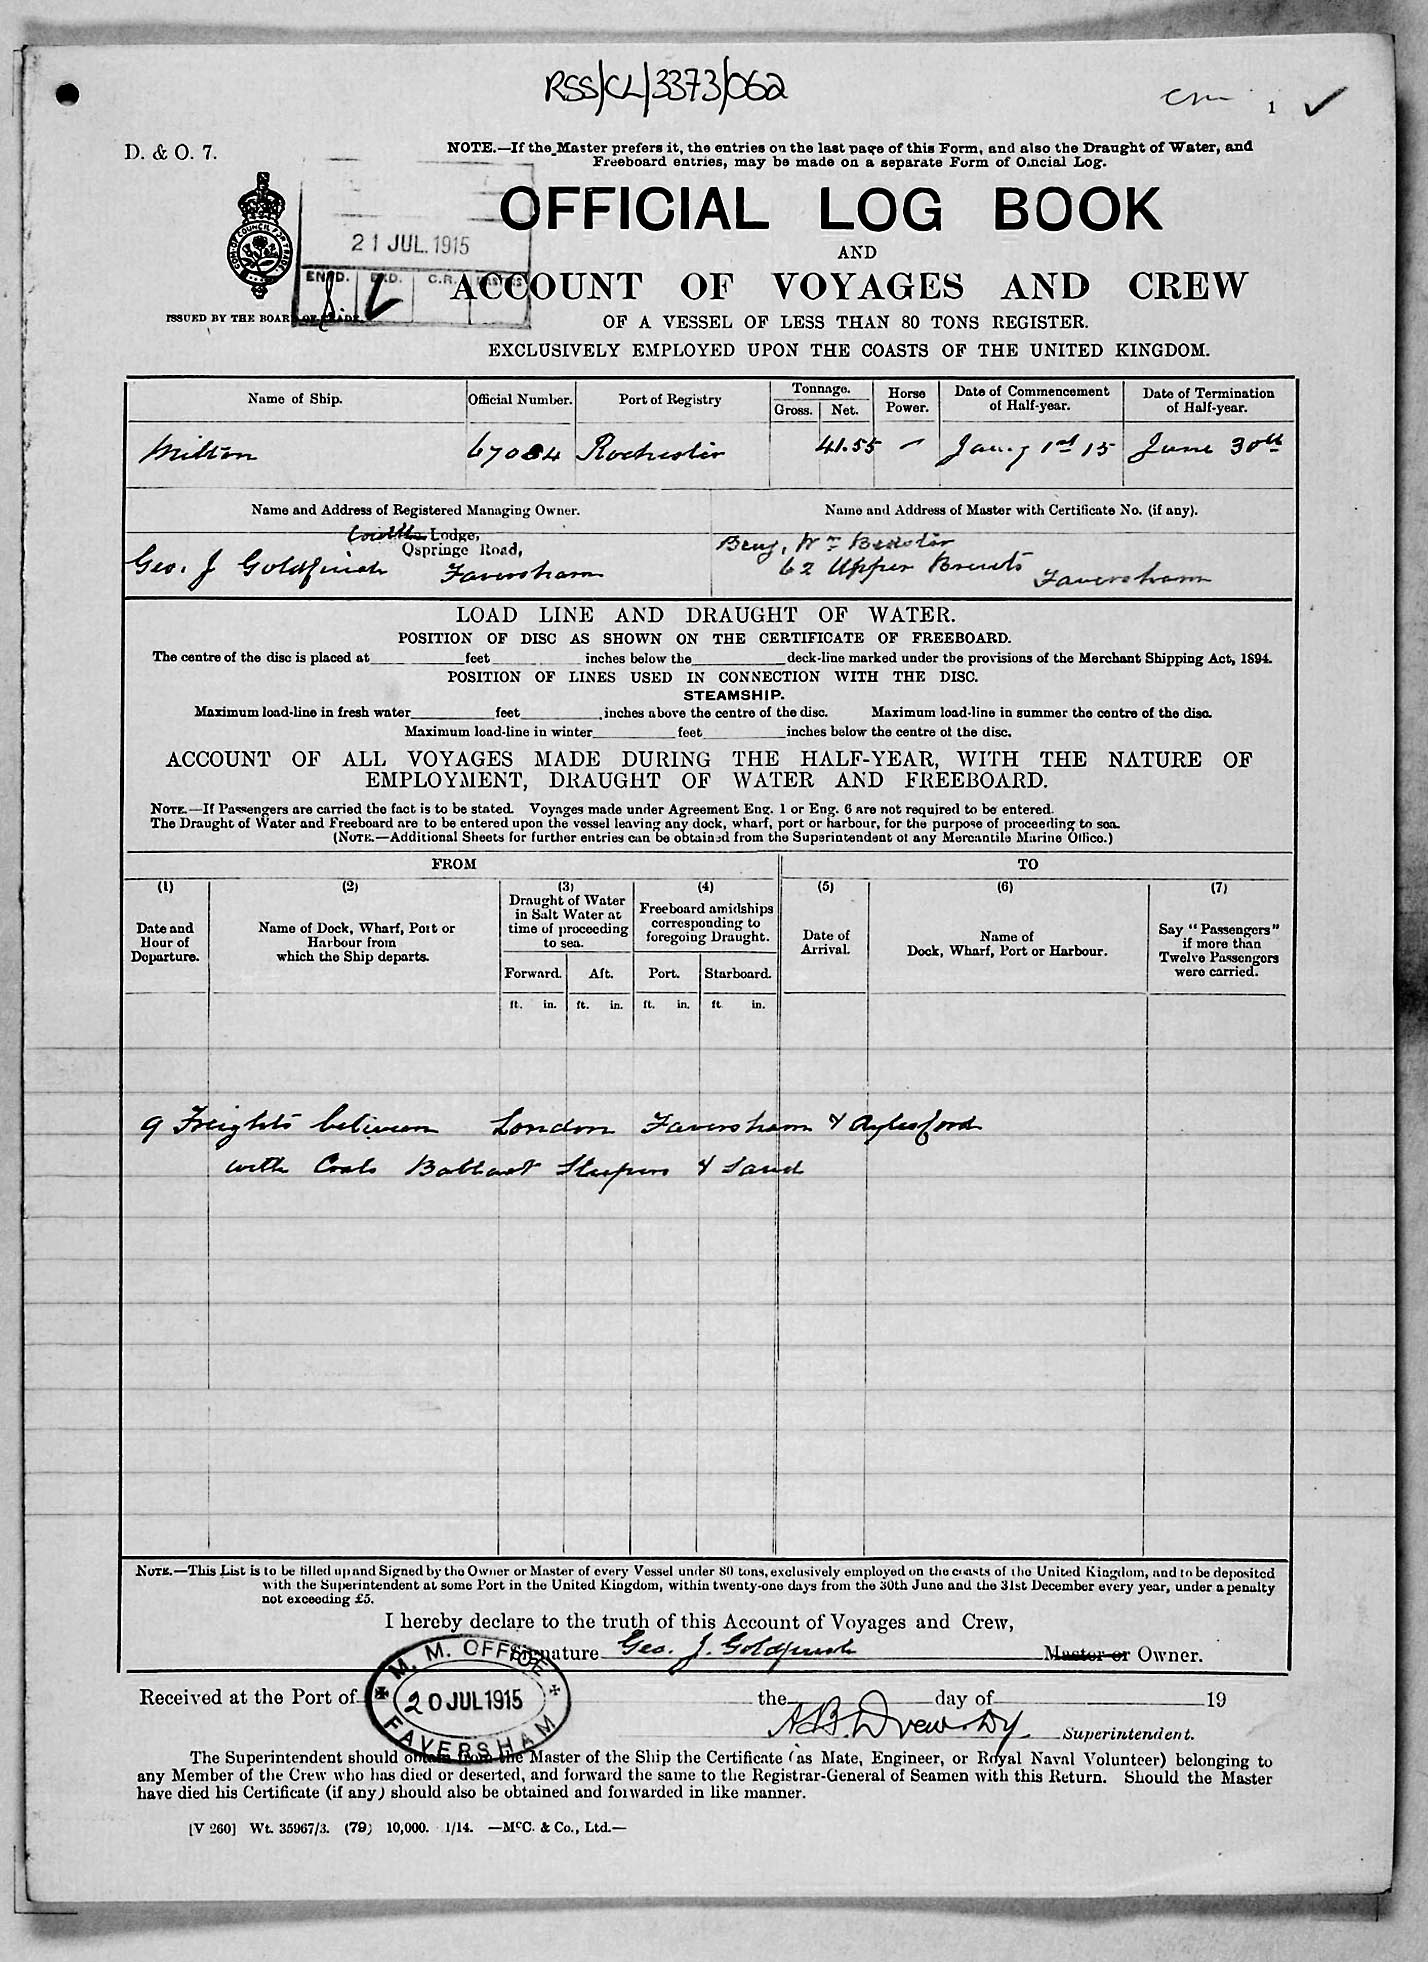 RSS/CL/3373/062
1
D. & O. 7.
NOTE.—If the Master prefers it, the entries on the last page of this Form, and also the Draught of Water, and
Freeboard entries, may be made on a separate Form of Official Log.
OFFICIAL LOG BOOK
21 JUL. 1915
AND
ENT'D. EXD. C.R.
ACCOUNT OF VOYAGES AND CREW
ISSUED BY THE BOARD OF TRADE.
OF A VESSEL OF LESS THAN 80 TONS REGISTER.
EXCLUSIVELY EMPLOYED UPON THE COASTS OF THE UNITED KINGDOM.
Name of Ship. Official Number. Port of Registry Tonnage. Gross. Net. Horse Power. Date of Commencement of Half-year. Date of Termination of Half-year.
Milton 67084 Rochester 41.55 Jany 1st 15 June 30th
Name and Address of Registered Managing Owner. Name and Address of Master with Certificate No. (if any).
Lodge,
Ospringe Road, Benj. Wm
Geo. J Goldfinch Faversham 62 Upper Brents Faversham
LOAD LINE AND DRAUGHT OF WATER.
POSITION OF DISC AS SHOWN ON THE CERTIFICATE OF FREEBOARD.
The centre of the disc is placed at feet inches below the deck-line marked under the provisions of the Merchant Shipping Act, 1894.
POSITION OF LINES USED IN CONNECTION WITH THE DISC.
STEAMSHIP.
Maximum load-line in fresh water feet inches above the centre of the disc. Maximum load-line in summer the centre of the disc.
Maximum load-line in winter feet inches below the centre of the disc.
ACCOUNT OF ALL VOYAGES MADE DURING THE HALF-YEAR, WITH THE NATURE OF
EMPLOYMENT, DRAUGHT OF WATER AND FREEBOARD.
NOTE.—If Passengers are carried the fact is to be stated. Voyages made under Agreement Eng. 1 or Eng. 6 are not required to be entered.
The Draught of Water and Freeboard are to be entered upon the vessel leaving any dock, wharf, port or harbour, for the purpose of proceeding to sea.
(NOTE.—Additional Sheets for further entries can be obtained from the Superintendent of any Mercantile Marine Office.)
FROM TO
(1) (2) (3) (4) (5) (6) (7)
Date and Hour of Departure.
Name of Dock, Wharf, Port or Harbour from which the Ship departs.
Draught of Water in Salt Water at time of proceeding to sea.
Freeboard amidships corresponding to foregoing Draught.
Date of Arrival.
Name of Dock, Wharf, Port or Harbour.
Say "Passengers" if more than Twelve Passengers were carried.
Forward. Aft. Port. Starboard.
ft. in. ft. in. ft. in. ft. in.
9 Freights between London Faversham & Aylesford
with Coals Ballast Sleepers & Sand
NOTE.—This List is to be filled up and Signed by the Owner or Master of every Vessel under 80 tons, exclusively employed on the coasts of the United Kingdom, and to be deposited
with the Superintendent at some Port in the United Kingdom, within twenty-one days from the 30th June and the 31st December every year, under a penalty
not exceeding £5.
I hereby declare to the truth of this Account of Voyages and Crew,
Signature Geo. J. Goldfinch Master or Owner.
M. M. OFFICE
20 JUL 1915
FAVERSHAM
Received at the Port of the day of 19
Superintendent.
The Superintendent should obtain from the Master of the Ship the Certificate (as Mate, Engineer, or Royal Naval Volunteer) belonging to
any Member of the Crew who has died or deserted, and forward the same to the Registrar-General of Seamen with this Return. Should the Master
have died his Certificate (if any) should also be obtained and forwarded in like manner.
[V 260] Wt. 35967/3. (79) 10,000. 1/14. —McC. & Co., Ltd.—